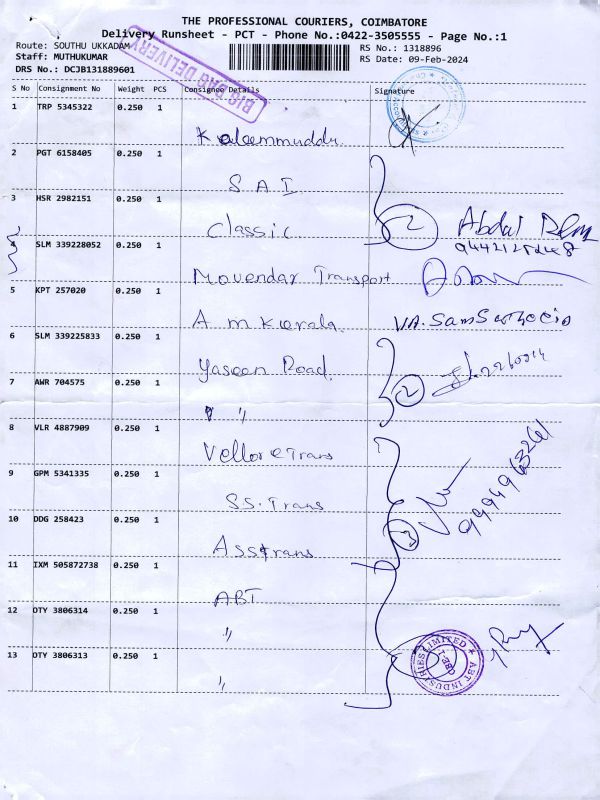 THE PROFESSIONAL COURIERS, COIMBATORE
Delivery Runsheet - PCT - Phone No.:0422-3505555 - Page No.:1
Route: SOUTHU UKKADAM
Staff: MUTHUKUMAR
DRS No.: DCJB131889601
BIG BAG DELIVERY
RS No.: 1318896
RS Date: 09-Feb-2024
S No Consignment No Weight PCS Consignee Details Signature
1 TRP 5345322 0.250 1
Kaleemmuddu
2 PGT 6158405 0.250 1
S A I
3 HSR 2982151 0.250 1
Classic 2 Abdul
4 SLM 339228052 0.250 1
Movendar Transport
5 KPT 257020 0.250 1
A m Kerala VA.
6 SLM 339225833 0.250 1
Yaseen Road
7 AWR 704575 0.250 1 2
" "
8 VLR 4887909 0.250 1
Vellore Trans
9 GPM 5341335 0.250 1 9994963261
SS. Trans
10 DDG 258423 0.250 1 3
Ass trans
11 IXM 505872738 0.250 1
ABT
12 OTY 3806314 0.250 1
"
13 OTY 3806313 0.250 1
"
ABT INDUSTRIES LIMITED